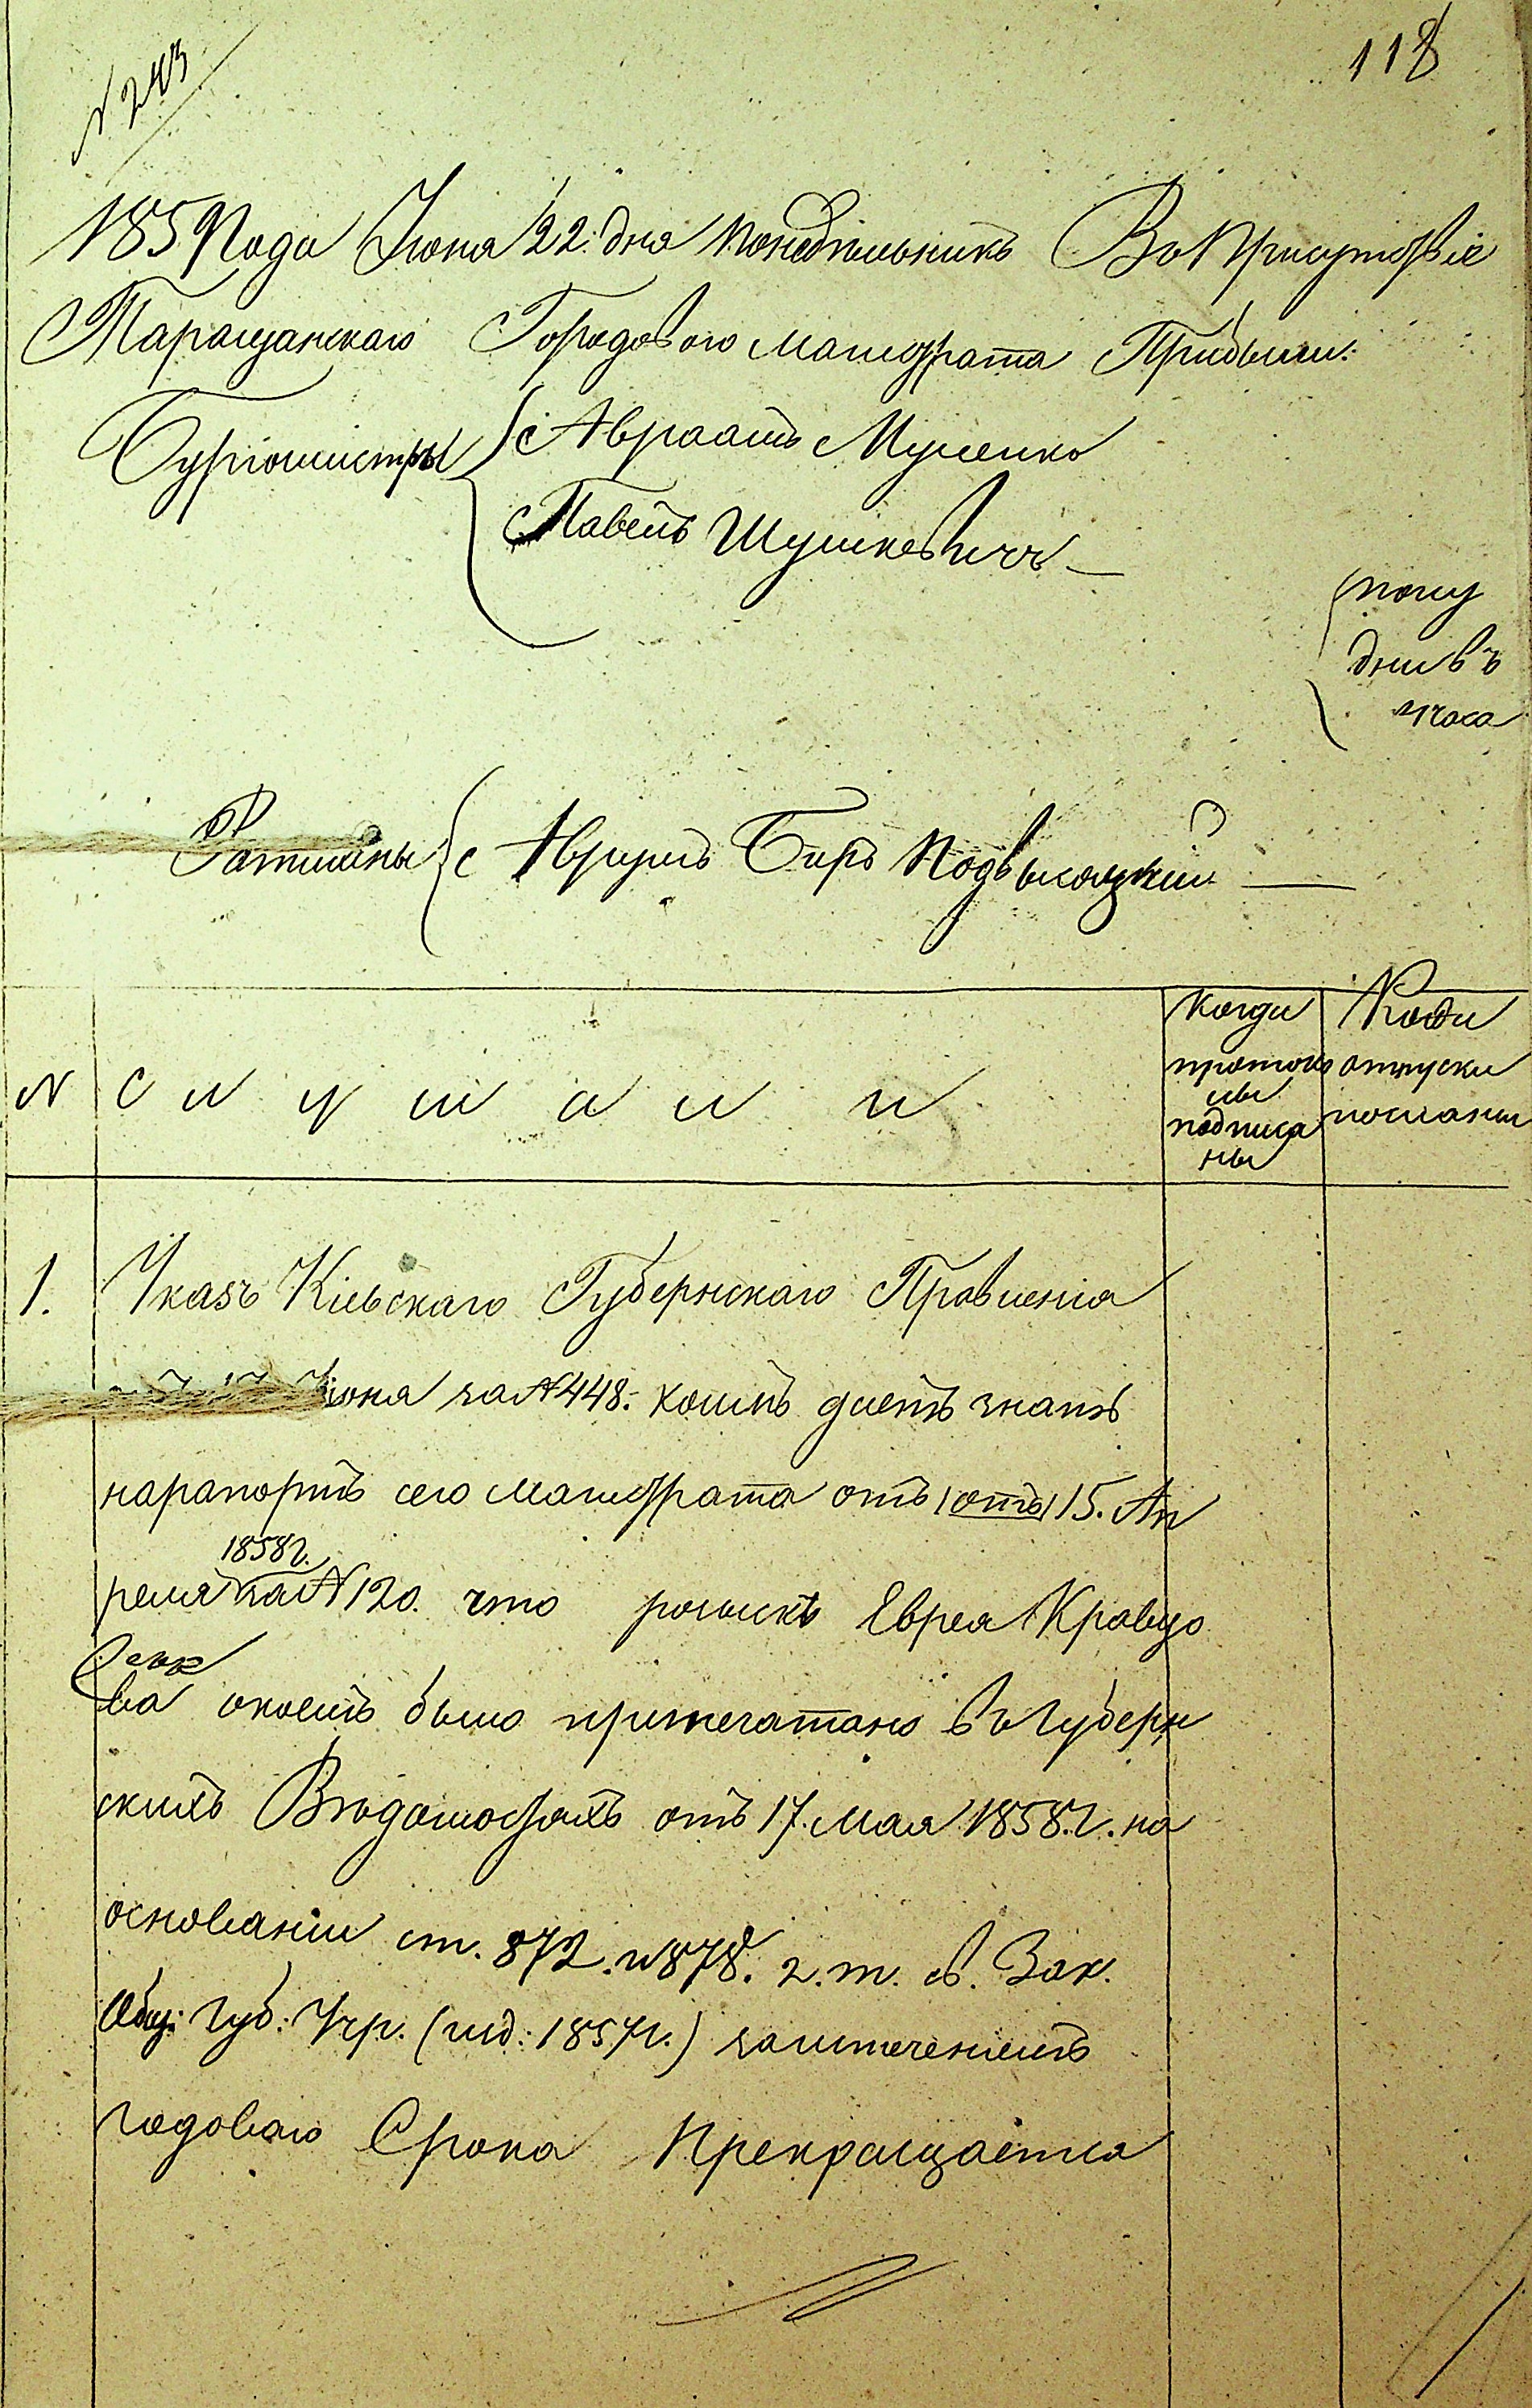 № 243
118
1859 года Июня 22. дня понедѣльникъ Въ Присутствіе
Таращанскаго Городоваго магистрата Прибыли:
Бургомистры
Авраамъ Мусенко
Павелъ Шушкевичъ
полу
дни въ
часа
Ратманы
Аврумъ Беръ Подвысоцкій
№ Слушали
когда
протоко
лы
подписа
ны
Когда
отпуски
посланы
1. Указъ Кіевскаго Губернскаго Правленія
Іюня за № 448. коимъ даетъ знать
на рапортъ сего магистрата отъ (отъ) 15. Ап
1858г.
реля за № 120. что розыскъ Еврея Кравцо
ва о коемъ было припечатано въ губерн
скихъ Вѣдомостяхъ отъ 17. мая 1858. г. на
основаніи ст. 872. и 878. 2. т. св. Зак.
Общ: Губ: Учр. (изд: 1857г.) за истеченіемъ
годоваго Срока Прекращается